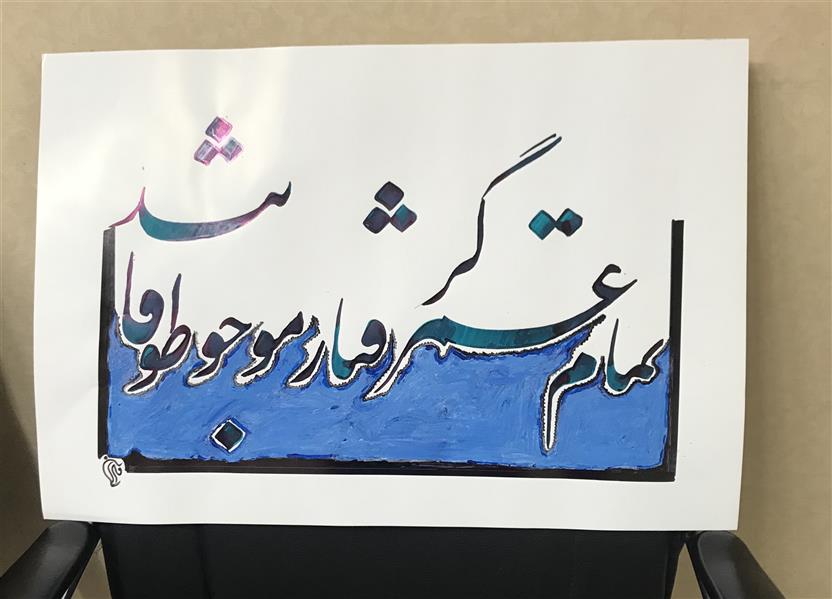 تمام عمر گرفتار موج و طوفان شد